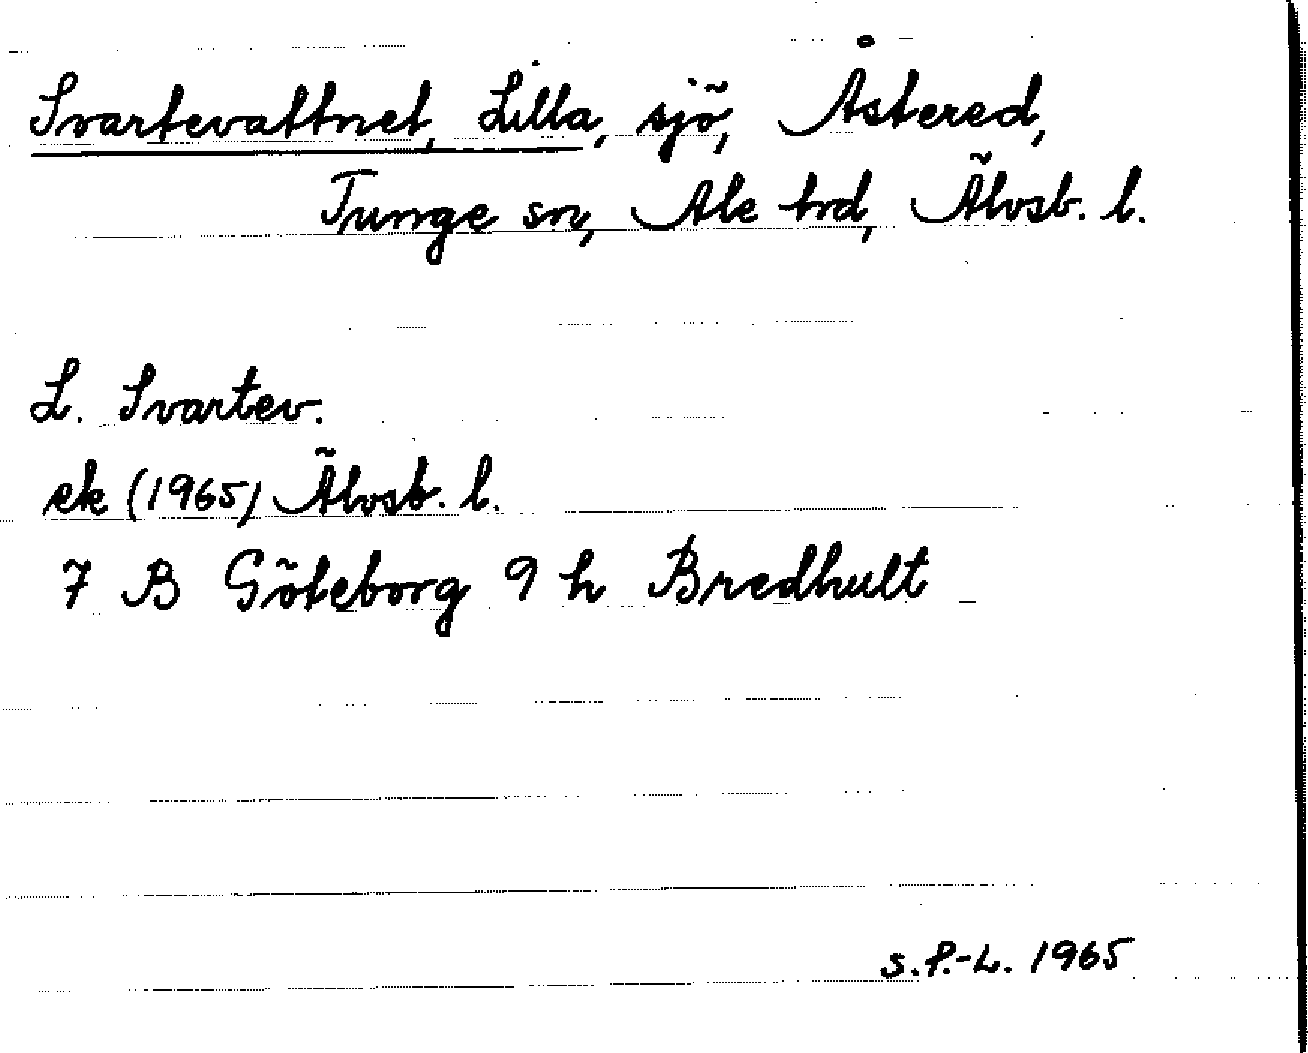 Svartevattnet, Lilla, sjö, Åstered,
Tunge sn, Ale hd, Älvsb. l.
L. Svartev.
ek (1965) Älvsb. l.
7 B Göteborg 9 h Bredhult
S.P.-L. 1965